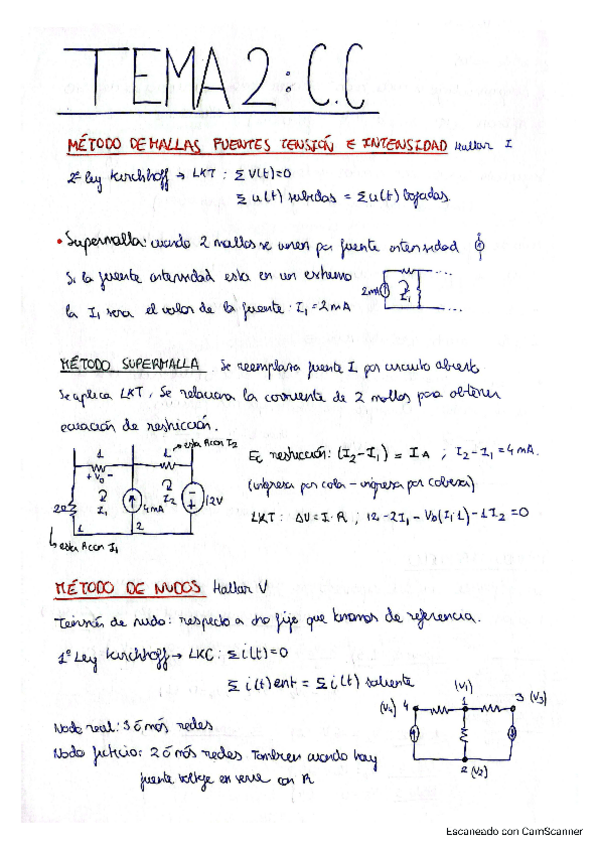 TEMA 2: C.C
MÉTODO DE MALLAS FUENTES TENSIÓN E INTENSIDAD Hallar I
2ª ley Kirchhoff → LKT: Σ V(t)=0
Σ u(t) subidas = Σ u(t) bajadas.
• Supermalla: cuando 2 mallas se unen por fuente intensidad
Si la fuente intensidad esta en un extremo
la I₁ sera el valor de la fuente · I₁ = 2mA
2mA
I₁
MÉTODO SUPERMALLA. Se reemplaza fuente I por circuito abierto
Se aplica LKT, Se relaciona la corriente de 2 mallas para obtener
ecuación de restricción.
esta R con I₂
1
1
+ V₀ -
2Ω
I₁
4mA
I₂
12V
1
2
esta R con I₁
Ec restricción: (I₂-I₁) = I A ; I₂-I₁ = 4mA.
(ingresa por cola - ingresa por cabeza)
LKT: ΔU = I·R ; 12-2I₁-V₀(I₁·1)-1I₂ = 0
MÉTODO DE NUDOS Hallar V
Tensión de nudo: respecto a otro fijo que tomamos de referencia.
1ª Ley Kirchhoff → LKC: Σ i(t)=0
Σ i(t) ent = Σ i(t) saliente
Nodo real: 3 ó más redes
Nodo ficticio: 2 ó más redes. Tambien cuando hay
fuente voltaje en serie con R
(V₁)
(V₄) 4
1
3 (V₃)
2 (V₂)
Escaneado con CamScanner